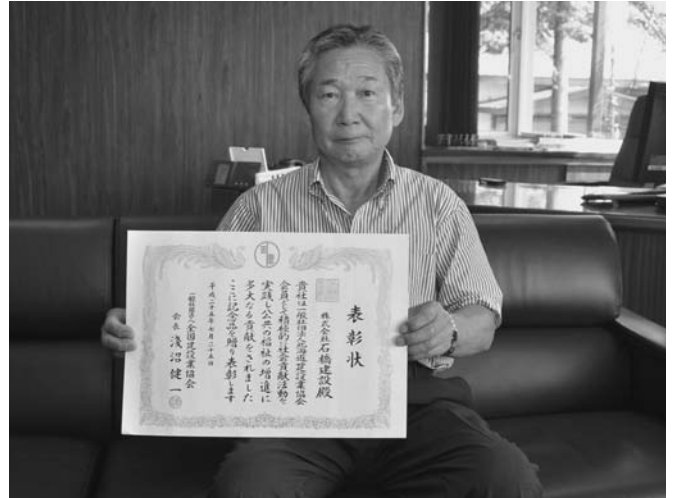 表彰状
株式会社石橋建設殿
貴社は一般社団法人北海道建設業協会
会員として積極的に社会貢献活動を
実践し公共の福祉の増進に
多大なる貢献をされました
ここに記念品を贈り表彰します
平成二十五年七月二十五日
一般社団法人全国建設業協会
会長 淺沼健一